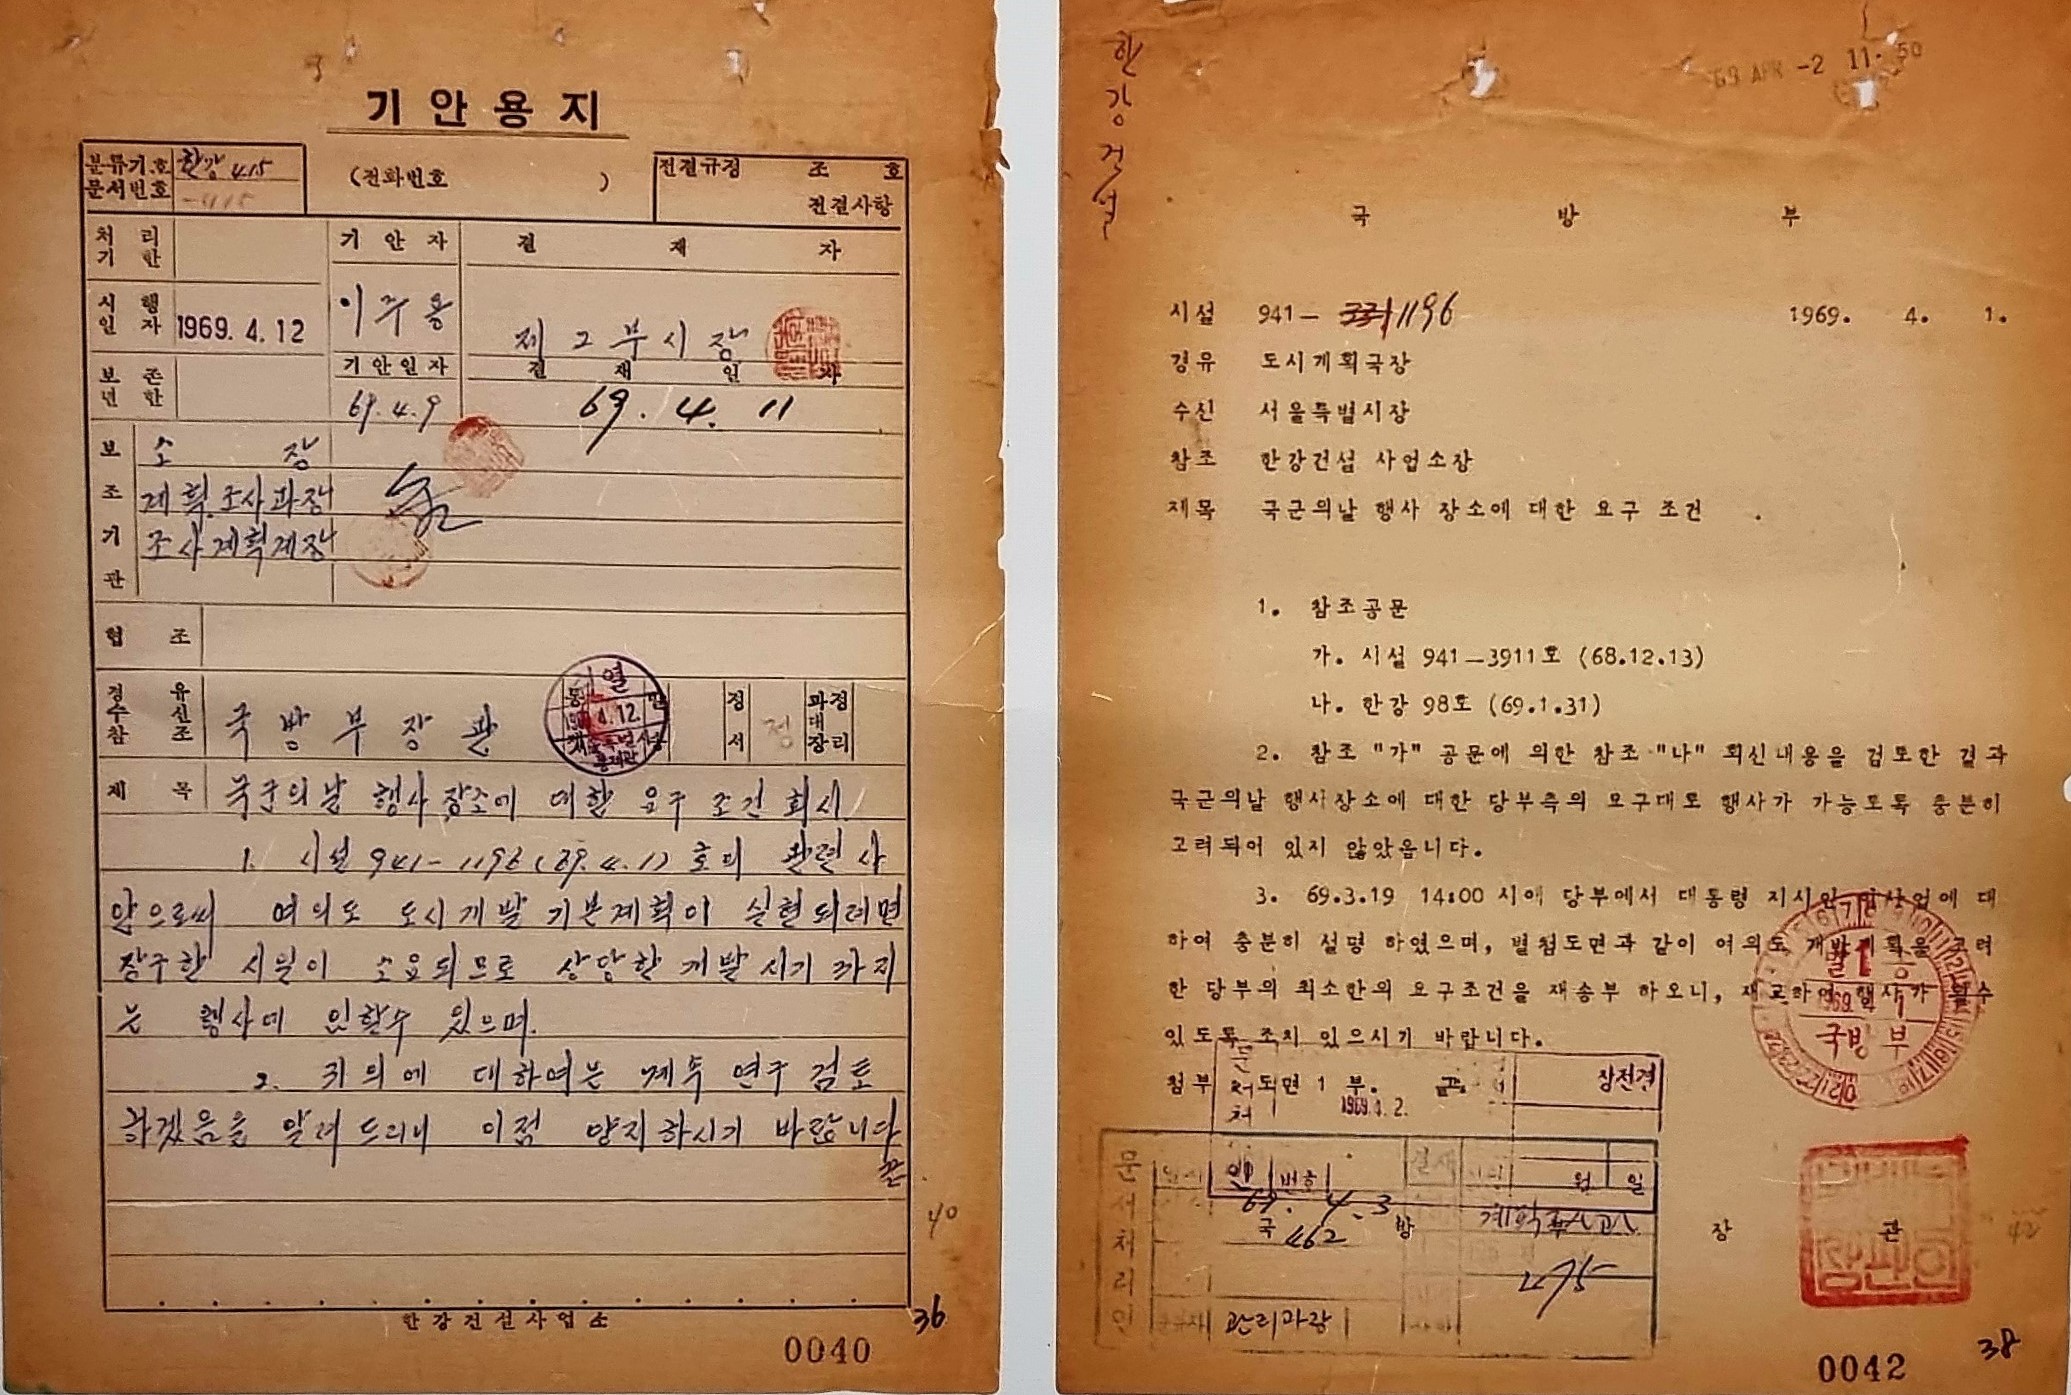 기안용지
분류기호 한강 415
문서번호
(전화번호 )
전결규정 조 호
전결사항
처리
기한
기안자
결재자
시행
일자 1969. 4. 12
이주용
제2부시장
보존
년한
기안일자
결재일자
69. 4. 9
69. 4. 11
보조기관
소장
계획조사과장
조사계획계장
협조
경유
수신
참조
국방부장관
열
4.12.
정서
정
과정
대
장리
제목 국군의날 행사 장소에 대한 요구 조건 회시
1. 시설 941-1196 (69.4.1) 호의 관련사
안으로써 여의도 도시개발 기본계획이 실현되려면
장구한 시일이 소요되므로 상당한 개발 시기 까지
는 행사에 임할수 있으며.
2. 귀의에 대하여는 계속 연구 검토
하겠음을 알려 드리니 이점 양지하시기 바랍니다
끝
한강건설사업소
40
36
0040
한강건설
69 APR -2 11. 50
국방부
시설 941- 1196 1969. 4. 1.
경유 도시계획국장
수신 서울특별시장
참조 한강건설 사업소장
제목 국군의날 행사 장소에 대한 요구 조건 .
1. 참조공문
가. 시설 941-3911호 (68.12.13)
나. 한강 98호 (69.1.31)
2. 참조 "가" 공문에 의한 참조 "나" 회신내용을 검토한 결과
국군의날 행사장소에 대한 당부측의 요구대로 행사가 가능도록 충분히
고려되어 있지 않았읍니다.
3. 69.3.19 14:00 시에 당부에서 대통령 지시인 사업에 대
하여 충분히 설명 하였으며, 별첨도면과 같이 여의도 개발계획을 고려
한 당부의 최소한의 요구조건을 재송부 하오니, 재고하여 행사가 될수
있도록 조치 있으시기 바랍니다.
첨부 도면 1 부. 끝.
1969.4.2.
장전결
국방부
국방장관
문서처리인
번호
결재
월 일
69. 4. 3
462
계획조사과
275
관리과장
42
38
0042